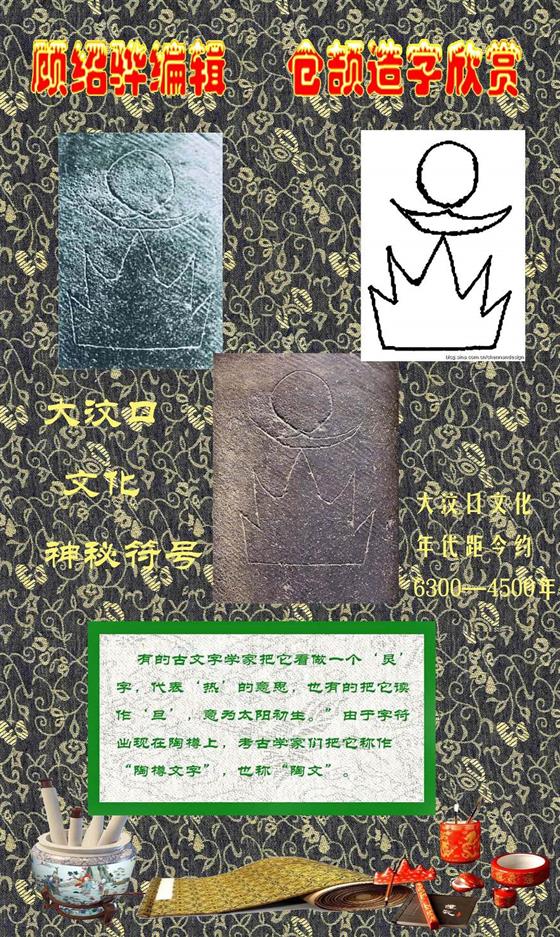 顾绍骅编辑 仓颉造字欣赏
blog.sina.com.cn/chennandesign
大汶口
文化
神秘符号
大汶口文化
年代距今约
6300—4500年
有的古文字学家把它看做一个‘炅’
字，代表‘热’的意思，也有的把它读
作‘旦’，意为太阳初生。”由于字符
出现在陶樽上，考古学家们把它称作
“陶樽文字”，也称“陶文”。